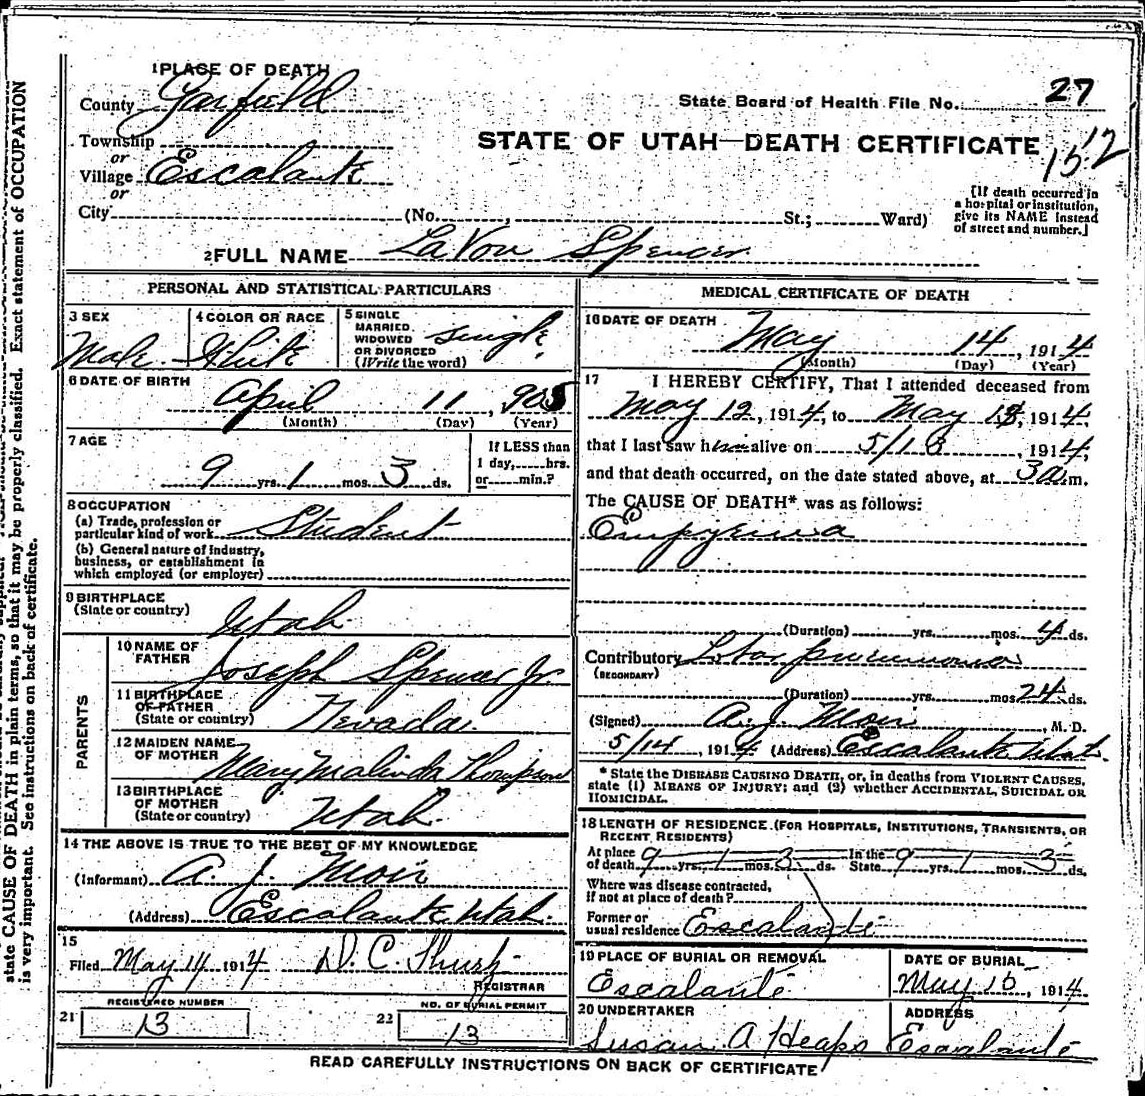 1 PLACE OF DEATH
County Garfield
State Board of Health File No. 27
Township
or
STATE OF UTAH—DEATH CERTIFICATE
1512
Village Escalante
or
City (No. , St.; Ward)
[If death occurred in
a hospital or institution,
give its NAME instead
of street and number.]
2 FULL NAME LaVon Spencer
state CAUSE OF DEATH in plain terms, so that it may be properly classified. Exact statement of OCCUPATION
is very important. See instructions on back of certificate.
PERSONAL AND STATISTICAL PARTICULARS
3 SEX
Male
4 COLOR OR RACE
White
5 SINGLE
MARRIED
WIDOWED
OR DIVORCED
(Write the word)
single
6 DATE OF BIRTH
April 11, 1905
(Month) (Day) (Year)
7 AGE
9 yrs. 1 mos. 3 ds.
If LESS than
1 day, hrs.
or min.?
8 OCCUPATION
(a) Trade, profession or
particular kind of work Student
(b) General nature of industry,
business, or establishment in
which employed (or employer)
9 BIRTHPLACE
(State or country)
Utah
PARENTS
10 NAME OF
FATHER
Joseph Spencer Jr.
11 BIRTHPLACE
OF FATHER
(State or country) Nevada
12 MAIDEN NAME
OF MOTHER
Mary Malinda Thompson
13 BIRTHPLACE
OF MOTHER
(State or country) Utah
14 THE ABOVE IS TRUE TO THE BEST OF MY KNOWLEDGE
(Informant) A. J. Moir
(Address) Escalante Utah.
15
Filed May 14 1914
REGISTRAR
REGISTERED NUMBER
21 13
NO. OF BURIAL PERMIT
22 13
MEDICAL CERTIFICATE OF DEATH
16 DATE OF DEATH
May 14, 1914
(Month) (Day) (Year)
17 I HEREBY CERTIFY, That I attended deceased from
May 12, 1914, to May 13, 1914,
that I last saw him alive on 5/13, 1914,
and that death occurred, on the date stated above, at 3 a.m.
The CAUSE OF DEATH* was as follows:
Empyema
(Duration) yrs. mos. 4 ds.
Contributory Lobar pneumonia
(SECONDARY)
(Duration) yrs. mos. 24 ds.
(Signed) A. J. Moir M. D.
5/14, 1914 (Address) Escalante Utah.
* State the DISEASE CAUSING DEATH, or, in deaths from VIOLENT CAUSES,
state (1) MEANS OF INJURY; and (2) whether ACCIDENTAL, SUICIDAL OR
HOMICIDAL.
18 LENGTH OF RESIDENCE. (FOR HOSPITALS, INSTITUTIONS, TRANSIENTS, OR
RECENT RESIDENTS)
At place
of death 9 yrs. 1 mos. 3 ds.
In the
State 9 yrs. 1 mos. 3 ds.
Where was disease contracted,
if not at place of death?
Former or
usual residence Escalante
19 PLACE OF BURIAL OR REMOVAL
Escalante
DATE OF BURIAL
May 15, 1914
20 UNDERTAKER
Susan A Heaps
ADDRESS
Escalante
READ CAREFULLY INSTRUCTIONS ON BACK OF CERTIFICATE